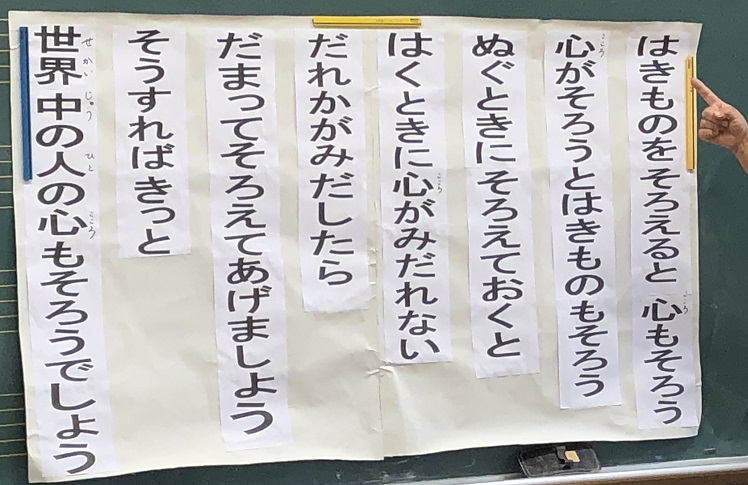 はきものをそろえると 心もそろう
心がそろうとはきものもそろう
ぬぐときにそろえておくと
はくときに心がみだれない
だれかがみだしたら
だまってそろえてあげましょう
そうすればきっと
世界中の人の心もそろうでしょう